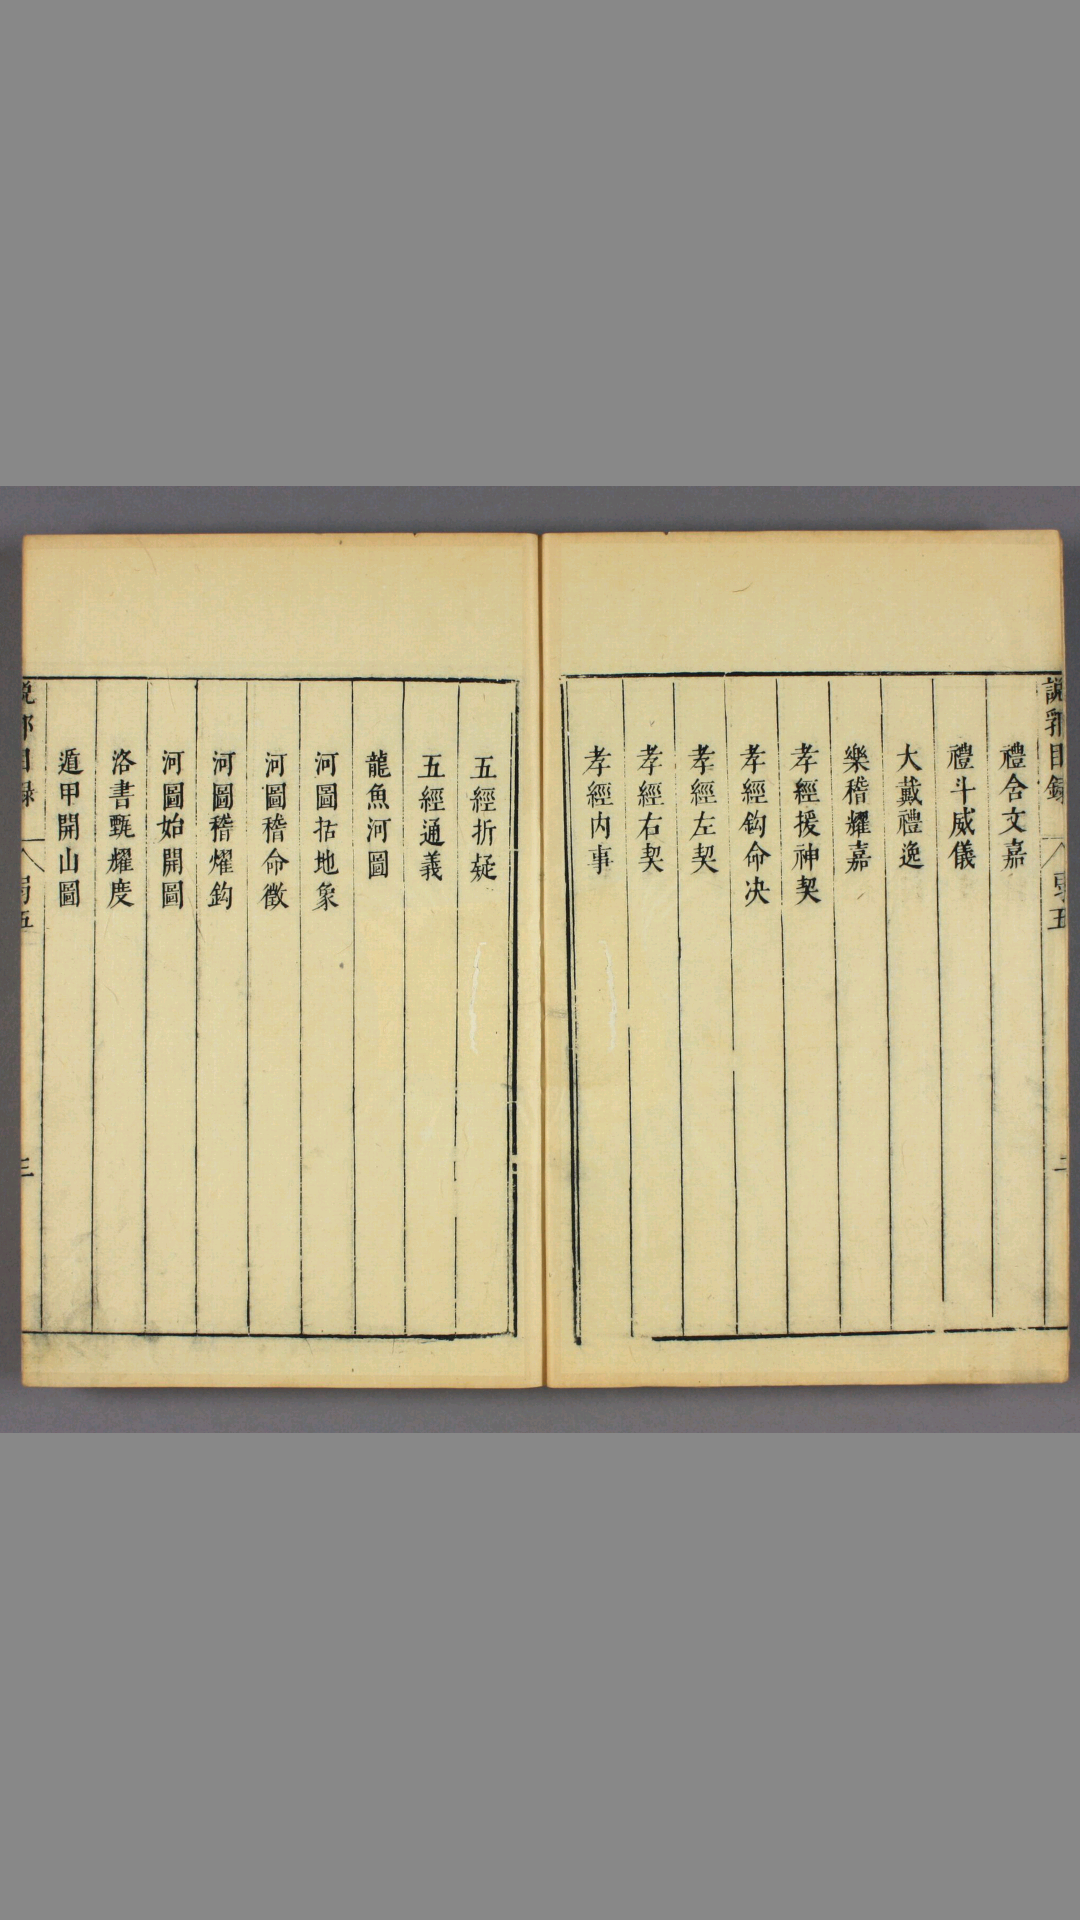 説郛目錄
禮含文嘉
禮斗威儀
大戴禮逸
樂稽耀嘉
孝經援神契
孝經鈎命决
孝經左契
孝經右契
孝經内事
五經折疑
五經通義
龍魚河圖
河圖括地象
河圖稽命徵
河圖稽燿鈎
河圖始開圖
洛書甄耀度
遁甲開山圖
三